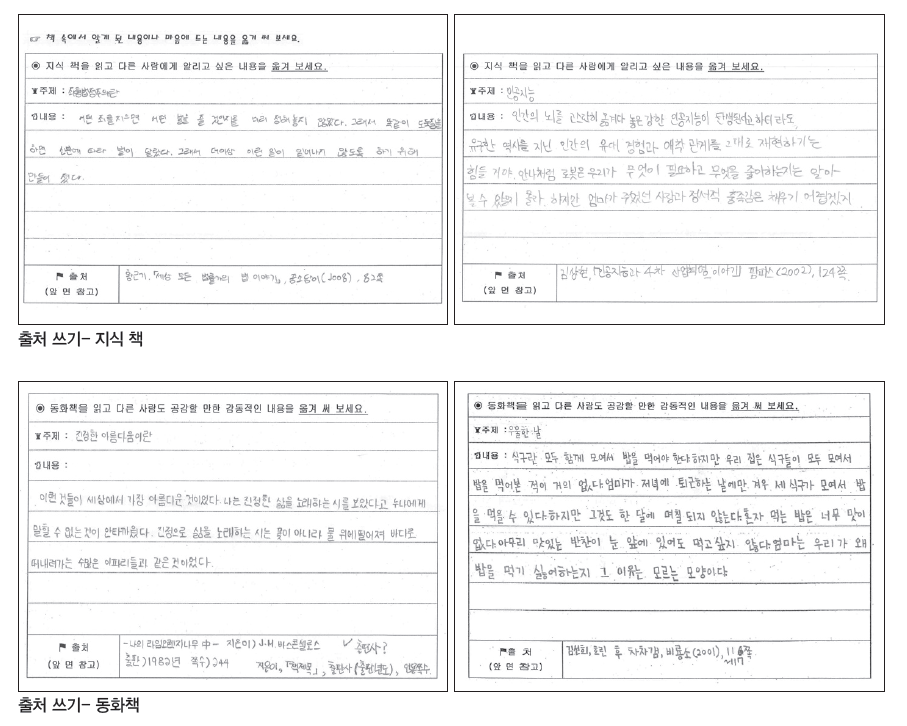 ☞ 책 속에서 알게 된 내용이나 마음에 드는 내용을 옮겨 써 보세요.
◉ 지식 책을 읽고 다른 사람에게 알리고 싶은 내용을 옮겨 보세요.
주제 : 죄형법정주의란
내용 : 어떤 죄를 지으면 어떤 벌을 줄 것인지를 미리 정해놓지 않았다. 그래서 똑같이 도둑질을
하면 신분에 따라 벌이 달랐다. 그래서 더이상 이런 일이 일어나지 않도록 하기 위해
만들어 졌다.
출처
(앞 면 참고)
황근기, 『세상 모든 법 이야기』, (2008), 82쪽
◉ 지식 책을 읽고 다른 사람에게 알리고 싶은 내용을 옮겨 보세요.
주제 : 인공지능
내용 : 인간의 뇌를 고스란히 옮겨다 놓은 강한 인공지능이 탄생된다고 하더라도
유구한 역사를 지닌 인간의 유대 경험과 애착 관계를 그대로 재현하기는
힘들 거야. 만나처럼 로봇은 우리가 무엇이 필요하고 무엇을 좋아하는지는 알아
낼 수 있을지 몰라. 하지만 엄마가 주었던 사랑과 정서적 충족감은 채우기 어렵겠지
출처
(앞 면 참고)
김상현, 『인공지능과 4차 산업혁명 이야기』 팜파스(2002), 124쪽
출처 쓰기- 지식 책
◉ 동화책을 읽고 다른 사람도 공감할 만한 감동적인 내용을 옮겨 써 보세요.
주제 : 진정한 아름다움이란
내용 :
이런 것들이 세상에서 가장 아름다운 것이었다. 나는 진정한 삶을 노래하는 시를 보았다고 누나에게
말할 수 없는 것이 안타까웠다. 진정으로 삶을 노래하는 시는 꽃이 아니라 물 위에 떨어져 바다로
떠내려가는 수많은 이파리들과 같은 것이었다.
출처
(앞 면 참고)
-나의 라임오렌지나무 中- 지은이) J.M.바스콘셀로스 ✓ 출판사?
출판) 1982년 쪽수) 244 지은이, 『책제목』, 출판사(출판년도), 인용쪽수.
◉ 동화책을 읽고 다른 사람도 공감할 만한 감동적인 내용을 옮겨 써 보세요.
주제 : 우울한 날
내용 : 식구란 모두 함께 모여서 밥을 먹어야 한다. 하지만 우리 집은 식구들이 모두 모여서
밥을 먹어본 적이 거의 없다. 엄마가 저녁에 퇴근하는 날에만 겨우 세 식구가 모여서 밥
을 먹을 수 있다. 하지만 그것도 한 달에 며칠 되지 않는다. 혼자 먹는 밥은 너무 맛이
없다. 아무리 맛있는 반찬이 눈 앞에 있어도 먹고 싶지 않다. 엄마는 우리가 왜
밥을 먹기 싫어하는지 그 이유는 모르는 모양이다
출처
(앞 면 참고)
차차갬, 비룡소(2001),
출처 쓰기- 동화책